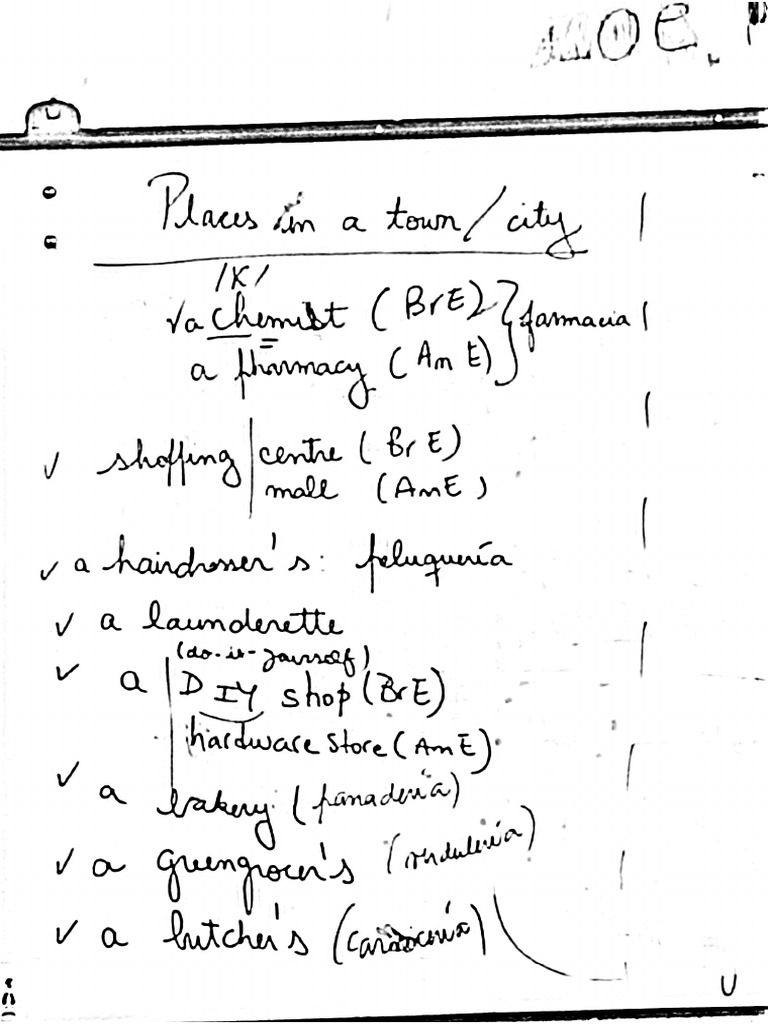 Places in a town / city
/K/
√ a chemist (BrE) } farmacia
a pharmacy (AmE)
√ shopping | centre (BrE)
mall (AmE)
√ a hairdresser's: peluquería
√ a launderette
(do-it-yourself)
√ a | DIY shop (BrE)
hardware store (AmE)
√ a bakery (panadería)
√ a greengrocer's (verdulería)
√ a butcher's (carnicería)